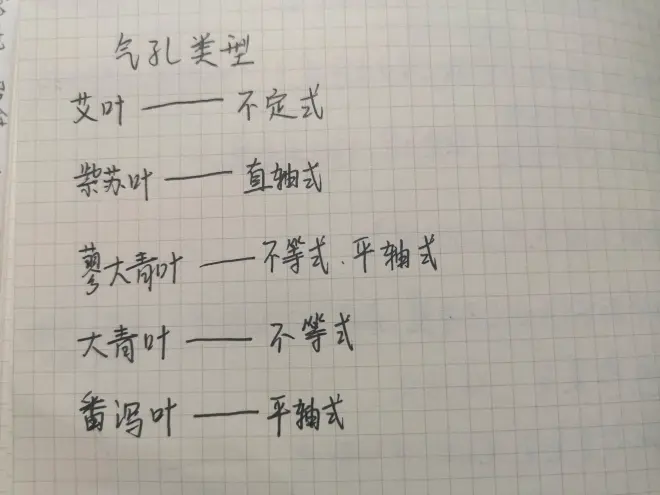 气孔类型
艾叶——不定式
紫苏叶——直轴式
蓼大青叶——不等式.平轴式
大青叶——不等式
番泻叶——平轴式